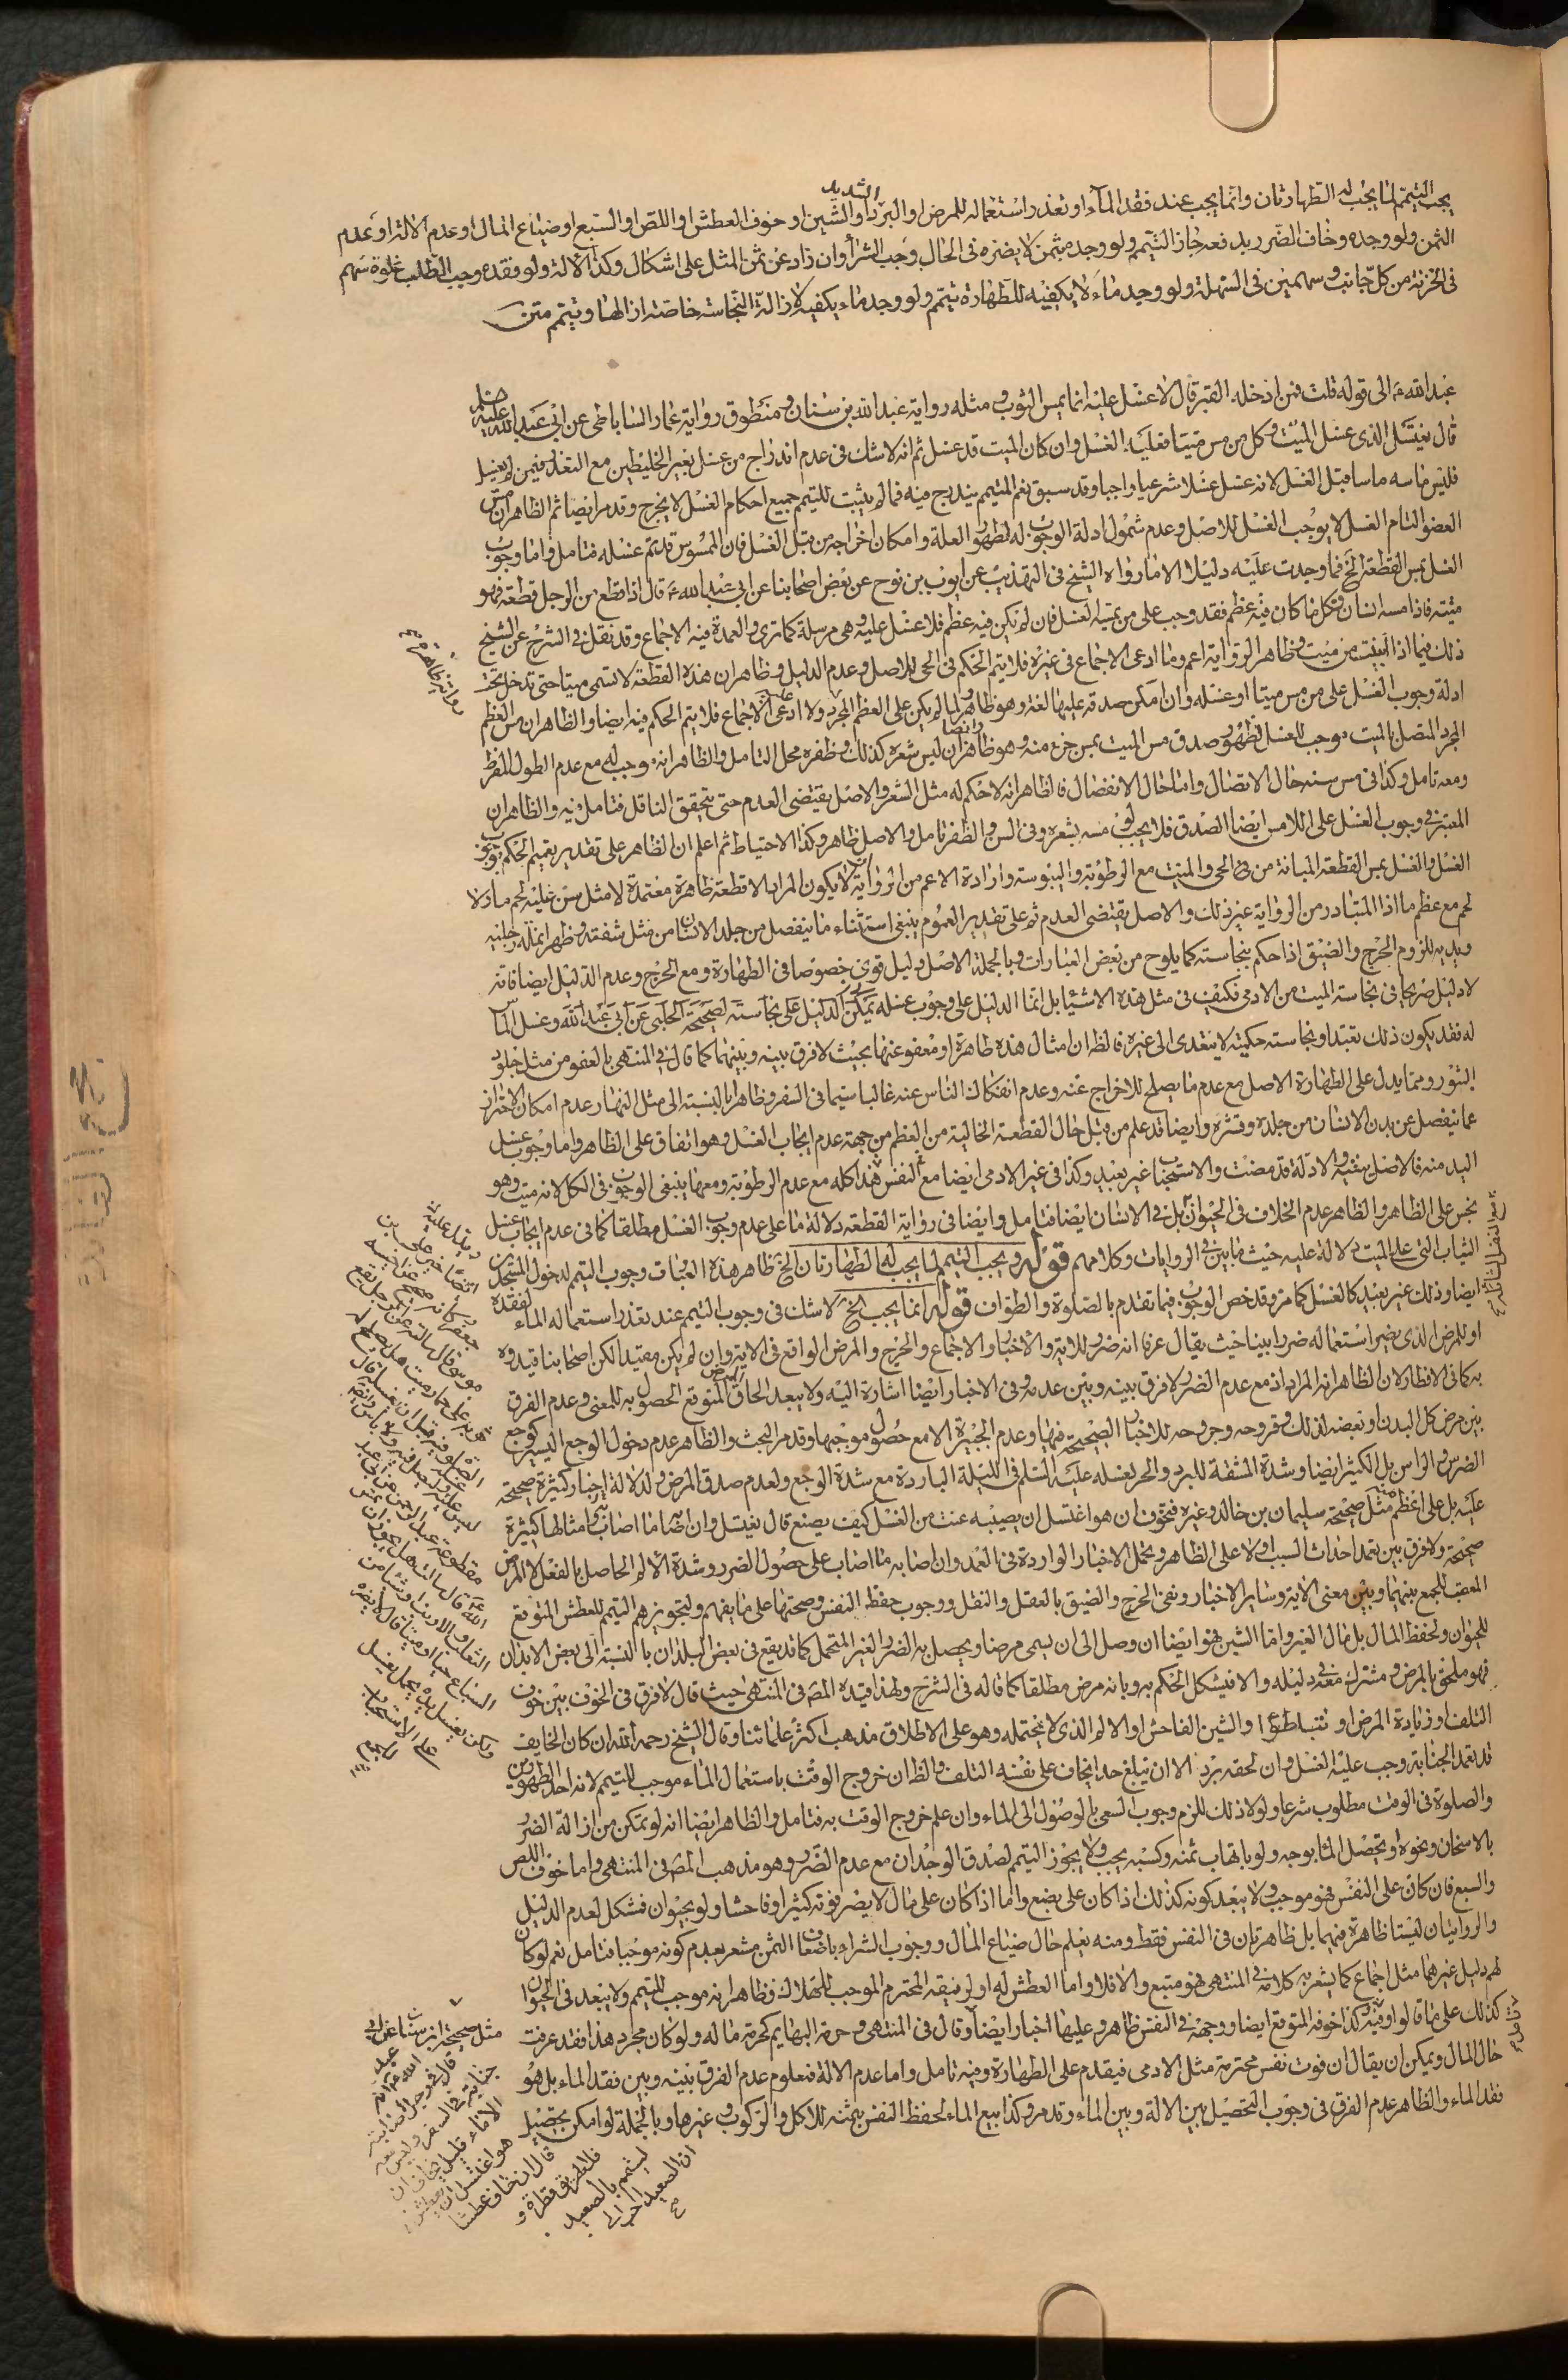 يجب التيمم لما يجب له الطهارتان وانما يجب عند فقد الماء او تعذر استعماله للمرض او البرد الشديد او الشين او خوف العطش او اللص او السبع او ضياع المال او عدم الالة او عدم
الثمن ولو وجده وخاف الضرر بدفعه جاز التيمم ولو وجد بثمن لا يضره في الحال وجب الشراء وان زاد عن ثمن المثل على اشكال وكذا الالة ولو فقده وجب الطلب غلوة سهم
في الحزنة من كل جانب وسهمين في السهلة ولو وجد ماء لا يكفيه للطهارة تيمم ولو وجد ماء يكفيه لازالة النجاسة خاصة ازالها وتيمم متن
عبد الله ع الى قوله قلت فمن ادخله القبر قال لا غسل عليه انما يمس الثوب ومثله رواية عبد الله بن سنان ومنطوق رواية عمار الساباطي عن ابي عبد الله عليه
قال يغتسل الذي غسل الميت وكل من مس ميتا فعليه الغسل وان كان الميت قد غسل ثم انه لا شك في عدم اندراج من غسل بغير الخليطين مع التعذر فيمن لم يغسل
فليس ماسه ماسا قبل الغسل لانه غسل غسلا شرعيا واجبا وقد سبق نعم المتيمم يندرج فيه فما لم يثبت للتيمم جميع احكام الغسل لا يخرج وقد مر ايضا ثم الظاهر ان مس
العضو التام الغسل لا يوجب الغسل للاصل وعدم شمول ادلة الوجوب له لظهور العلة وامكان اخراجه من قبل الغسل فان الممسوس قد تم غسله فتامل واما وجوب
الغسل بمس القطعة الخ فما وجدت عليه دليلا الا ما رواه الشيخ في التهذيب عن ايوب بن نوح عن بعض اصحابنا عن ابي عبد الله ع قال اذا قطع من الرجل قطعة فهو
ميتة فاذا مسه انسان فكل ما كان فيه عظم فقد وجب على من يمسه الغسل فان لم يكن فيه عظم فلا غسل عليه وهي مرسلة كما ترى والعمدة فيه الاجماع وقد نقل في الشرح عن الشيخ
ذلك فيما اذا ابينت من ميت وظاهر الرواية اعم وما ادعى الاجماع في غيره فلا يتم الحكم في الحي للاصل وعدم الدليل وظاهر ان هذه القطعة لا تسمى ميتا حتى تدخل تحت
ادلة وجوب الغسل على من مس ميتا او غسله وان امكن صدقه عليها لغة وهو ظاهر ولما لم يكن على العظم المجرد ولا ادعى الاجماع فلا يتم الحكم فيه ايضا والظاهر ان مس العظم
المجرد المتصل بالميت موجب للغسل لظهور صدق مس الميت بمس جزء منه وهو ظاهر ايضا ان ليس شعره كذلك وظفره محل التامل والظاهر انه موجب له مع عدم الطول المفرط
ومعه تامل وكذا في مس سنه حال الاتصال واما حال الانفصال فالظاهر انه لا حكم له مثل الشعر والاصل يقتضي العدم حتى يتحقق الناقل فتامل فيه والظاهر ان
المعتبر في وجوب الغسل على اللامس ايضا الصدق فلا يجب لو مسه بشعره وفي السن والظفر تامل والاصل ظاهر وكذا الاحتياط ثم اعلم ان الظاهر على تقدير تعميم الحكم بوجوب
الغسل والغسل بمس القطعة المبانة من الحي والميت مع الرطوبة واليبوسة وارادة الاعم من الرواية ان لا يكون المراد الا قطعة ظاهرة معتمدة لا مثل سن عليه لحم ما ولا
لحم مع عظم ما اذ المتبادر من الرواية غير ذلك والاصل يقتضي العدم ثم على تقدير العموم ينبغي استثناء ما ينفصل من جلد الانسان من مثل شفته وظهر انملة رجليه
ويديه للزوم الحرج والضيق اذا حكم بنجاسته كما يلوح من بعض العبارات وبالجملة الاصل دليل قوي خصوصا في الطهارة ومع الحرج وعدم الدليل ايضا فانه
لا دليل صريحا في نجاسة الميت من الادمي فكيف في مثل هذه الاشياء بل انما الدليل على وجوب غسله يمكن الدليل على نجاسته لصحيحة الحلبي عن ابي عبد الله وغسل الماس
له فقد يكون ذلك تعبدا ونجاسته حكمية لا يتعدى الى غيره فالظ ان امثال هذه طاهرة او معفو عنها بحيث لا فرق بينه وبينهما كما قال في المنتهى بالعفو من مثل جلود
البثور ومما يدل على الطهارة الاصل مع عدم ما يصلح للاخراج عنه وعدم انفكاك الناس عنه غالبا سيما في السفر وظاهر بالنسبة الى مثل النهار عدم امكان الاحتراز
عما ينفصل عن بدن الانسان من جلده وقشره وايضا قد علم من قبل حال القطعة الخالية من العظم من جهة عدم ايجاب الغسل وهو اتفاق على الظاهر واما وجوب غسل
اليد منه فالاصل ينفيه والادلة قد مضت والاستحباب غير بعيد وكذا في غير الادمي ايضا مع النفس هذا كله مع عدم الرطوبة ومعها ينبغي الوجوب في الكل لانه ميت وهو
نجس على الظاهر والظاهر عدم الخلاف في الحيوان بل في الانسان ايضا فتامل وايضا في رواية القطعة دلالة ما على عدم وجوب الغسل مطلقا كما في عدم ايجاب غسل
الثياب التي على الميت دلالة عليه حيث ما بين في الروايات وكلامهم قوله ويجب التيمم لما يجب له الطهارتان الخ ظاهر هذه العبارات وجوب التيمم لدخول المسجدين
ايضا وذلك غير بعيد كالغسل كما مر وقد خص الوجوب فيما تقدم بالصلوة والطواف قوله انما يجب الخ لا شك في وجوب التيمم عند تعذر استعماله الماء لفقده
او للمرض الذي يضر استعماله ضررا بينا حيث يقال عرفا انه ضرر للاية والاخبار والاجماع والحرج والمرض الواقع في الاية وان لم يكن مقيد الكن اصحابنا قيدوه
به كما في الافطار لان الظاهر انه المراد اذ مع عدم الضرر لا فرق بينه وبين عدمه وفي الاخبار ايضا اشارة اليه ولا يبعد الحاق المرض المتوقع الحصول به للمعنى وعدم الفرق
بين مرض كل البدن او بعضه لذلك وقروحه وجروحه للاخبار الصحيحة فيها وعدم الجبيرة الا مع حصول موجبها وقد مر البحث والظاهر عدم دخول الوجع اليسير كوجع
الضرس والراس بل الكثير ايضا وشدة المشقة للبرد والحر لغسله عليه السلم في الليلة الباردة مع شدة الوجع ولعدم صدق المرض ولدلالة اخبار كثيرة صحيحة
عليه بل على اعظم منه مثل صحيحة سليمان بن خالد وغيره فتخوف ان هو اغتسل ان يصيبه عنت من الغسل كيف يصنع قال يغتسل وان اصابه ما اصابه وامثالها كثيرة
صحيحة ولا فرق بين تعمد احداث السبب او لا على الظاهر ويحمل الاخبار الواردة في العمد وان اصابه ما اصاب على حصول الضرر وشدة الالم الحاصل بالفعل لا المرض
المعقب للجمع بينهما وبين معنى الاية وساير الاخبار ونفي الحرج والضيق بالعقل والنقل ووجوب حفظ النفس وصحتها على ما يفهم ولتجويزهم التيمم للعطش المتوقع
للحيوان ولحفظ المال بل لمال الغير واما الشين فهو ايضا ان وصل الى ان يسمى مرضا ويحصل به الضرر الغير المتحمل كما قد يقع في بعض البلدان بالنسبة الى بعض الابدان
فهو ملحق بالمرض ومشترك معه في دليله والا فيشكل الحكم به وبانه مرض مطلقا كما قاله في الشرح ولهذا قيده المص في المنتهى حيث قال لا فرق في الخوف بين خوف
التلف او زيادة المرض او تباطؤه او الشين الفاحش او الالم الذي لا يحتمله وهو على الاطلاق مذهب اكثر علمائنا وقال الشيخ رحمه الله ان كان الخايف
قد تعمد الجنابة وجب عليه الغسل وان لحقه برد الا ان يبلغ حدا يخاف على نفسه التلف والظ ان خروج الوقت باستعمال الماء موجب للتيمم لانه احد الطهورين
والصلوة في الوقت مطلوب شرعا ولولا ذلك للزم وجوب السعي بالوصول الى الماء وان علم خروج الوقت به فتامل والظاهر ايضا انه لو تمكن من ازالة الضرر
بالاسخان ونحوه او تحصل الماء بوجه ولو باتهاب ثمنه وكسبه يجب ولا يجوز التيمم لصدق الوجدان مع عدم الضرر وهو مذهب المص في المنتهى واما خوف اللص
والسبع فان كان على النفس فهو موجب ولا يبعد كونه كذلك اذا كان على بضع واما اذا كان على مال لا يضر فوته كثيرا وفاحشا ولو بحيوان فمشكل لعدم الدليل
والروايتان ليستا ظاهرة فيهما بل ظاهرتان في النفس فقط ومنه يعلم حال ضياع المال ووجوب الشراء باضعاف الثمن مشعر بعدم كونه موجبا فتامل نعم لو كان
لهم دليل غيرهما مثل اجماع كما يشعر به كلامه في المنتهى فهو متبع والا فلا واما العطش له او لرفيقه المحترم الموجب للهلاك فظاهر انه موجب للتيمم ولا يبعد في الحيوان
كذلك على ما قالوا وقنيته كذا خوفه المتوقع ايضا ووجهه في النفس ظاهر وعليها اخبار ايضا وقال في المنتهى وحرمة البهايم كحرمة ماله ولو كان مجرد هذا فقد عرفت
حال المال ويمكن ان يقال ان فوت نفس محترمة مثل الادمي فيقدم على الطهارة وفيه تامل واما عدم الالة فمعلوم عدم الفرق بينه وبين فقد الماء بل هو
فقد الماء والظاهر عدم الفرق في وجوب التحصيل بين الالة وبين الماء وقد مر وكذا بيع الماء لحفظ النفس بثمنه للاكل والركوب وغيرها وبالجملة لو امكن تحصيل
ويدل عليه
ايضا خبر علي بن
جعفر
مثل صحيحة ابن سنان عن ابي
عبد الله ع انه
قال في رجل اصابته
جنابة في السفر وليس معه
الا ماء قليل يخاف ان
هو اغتسل ان يعطش
قال ان خاف عطشا
فلا يهريق قطرة و
ليتيمم بالصعيد